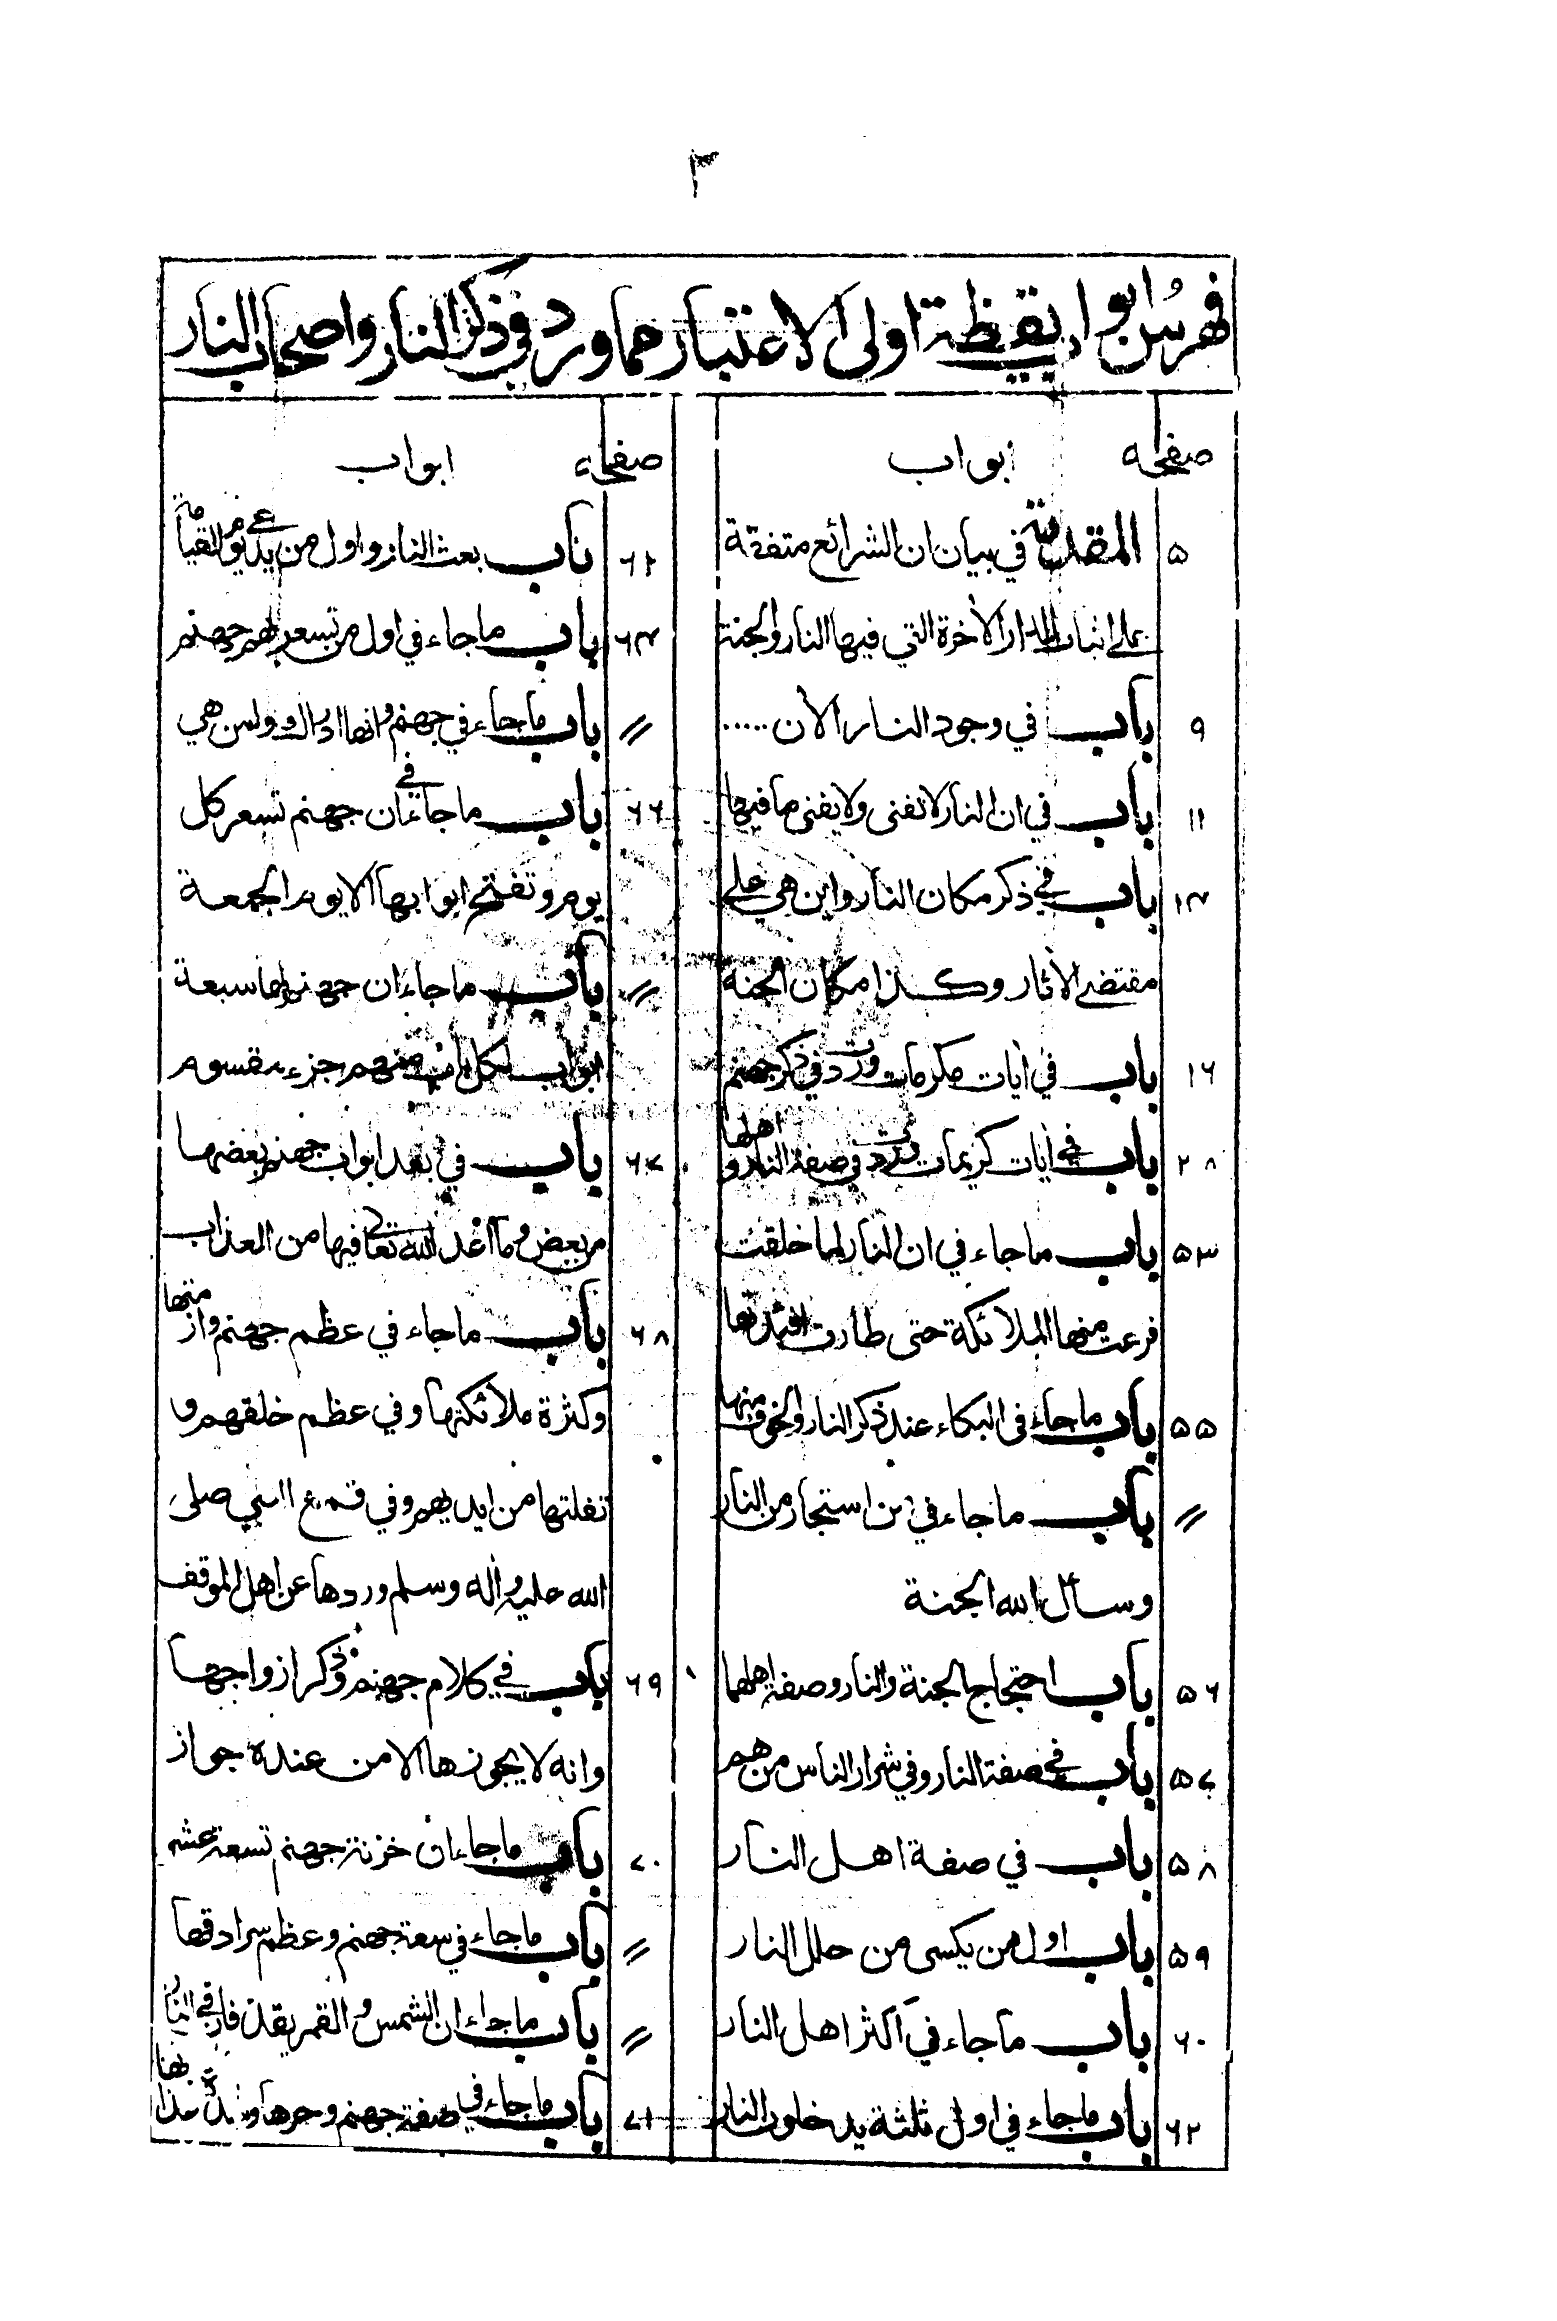 ٣
فهرس ابواب يقظة اولى الاعتبار مما ورد في ذكر النار واصحاب النار
صفحه ابواب
٥ المقدمة في بيان ان الشرائع متفقة
على اثبات الدار الآخرة التي فيها النار والجنة
٩ باب في وجود النار الآن .....
١١ باب في ان النار لا تفنى ولا يفنى ما فيها
١٣ باب في ذكر مكان النار واين هي على
مقتضى الآثار وكذا مكان الجنة
١٦ باب في آيات مكرمات وردت في ذكر جهنم
٢٨ باب في آيات كريمات وردت في صفة النار و اهلها
٥٣ باب ما جاء في ان النار لما خلقت
فزعت منها الملائكة حتى طارت افئدتها
٥٥ باب ما جاء في البكاء عند ذكر النار والخوف منها
〃 باب ما جاء في من استجار من النار
وسأل الله الجنة
٥٦ باب احتجاج الجنة والنار وصفة اهلهما
٥٧ باب في صفة النار وفي شرار الناس من هم
٥٨ باب في صفة اهل النار
٥٩ باب اول من يكسى من حلل النار
٦٠ باب ما جاء في اكثر اهل النار
٦٢ باب ما جاء في اول ثلثة يدخلون النار
صفحه ابواب
٦٢ باب بعث النار واول من يدعى يوم القيامة
٦٣ باب ما جاء في اول من تسعر بهم جهنم
〃 باب ما جاء في جهنم وانها ادراك ولمن هي
٦٦ باب ما جاء في ان جهنم تسعر كل
يوم وتفتح ابوابها الا يوم الجمعة
〃 باب ما جاء ان جهنم لها سبعة
ابواب لكل باب منهم جزء مقسوم
٦٧ باب في بعد ابواب جهنم بعضها
من بعض وما اعد الله تعالى فيها من العذاب
٦٨ باب ما جاء في عظم جهنم وازمتها
وكثرة ملائكتها وفي عظم خلقهم و
تفلتها من ايديهم وفي قمع النبي صلى
الله عليه وآله وسلم وردها عن اهل الموقف
٦٩ باب في كلام جهنم وذكر ازواجها
وانه لا يجوزها الا من عنده جواز
٧٠ باب ما جاء ان خزنة جهنم تسعة عشر
〃 باب ما جاء في سعة جهنم وعظم سرادقها
〃 باب ما جاء ان الشمس والقمر يقذفان في النار
٧١ باب ما جاء في صفة جهنم وحرها وشدة عذابها